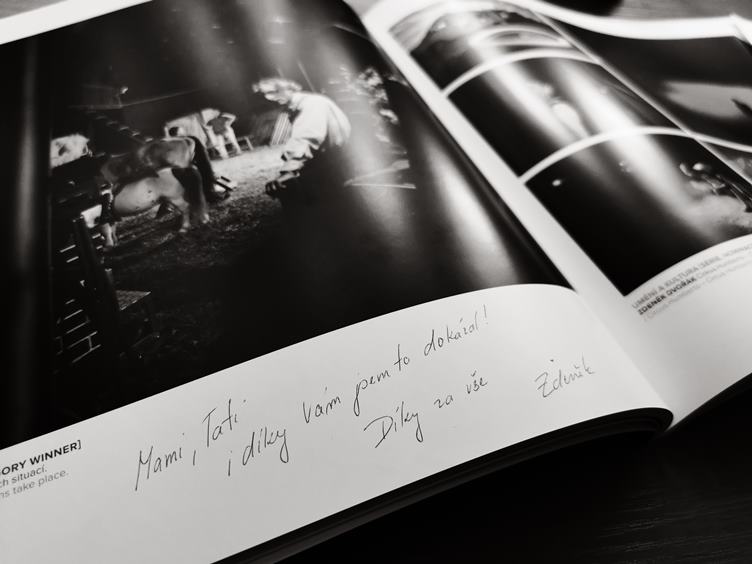 ORY WINNER]
ch situací.
ns take place.
Mami, Tati
i díky vám jsem to dokázal!
Díky za vše
Zdeněk
UMĚNÍ A KULTURA [SÉRIE,
ZDENĚK DVOŘÁK Cirkus Humberto